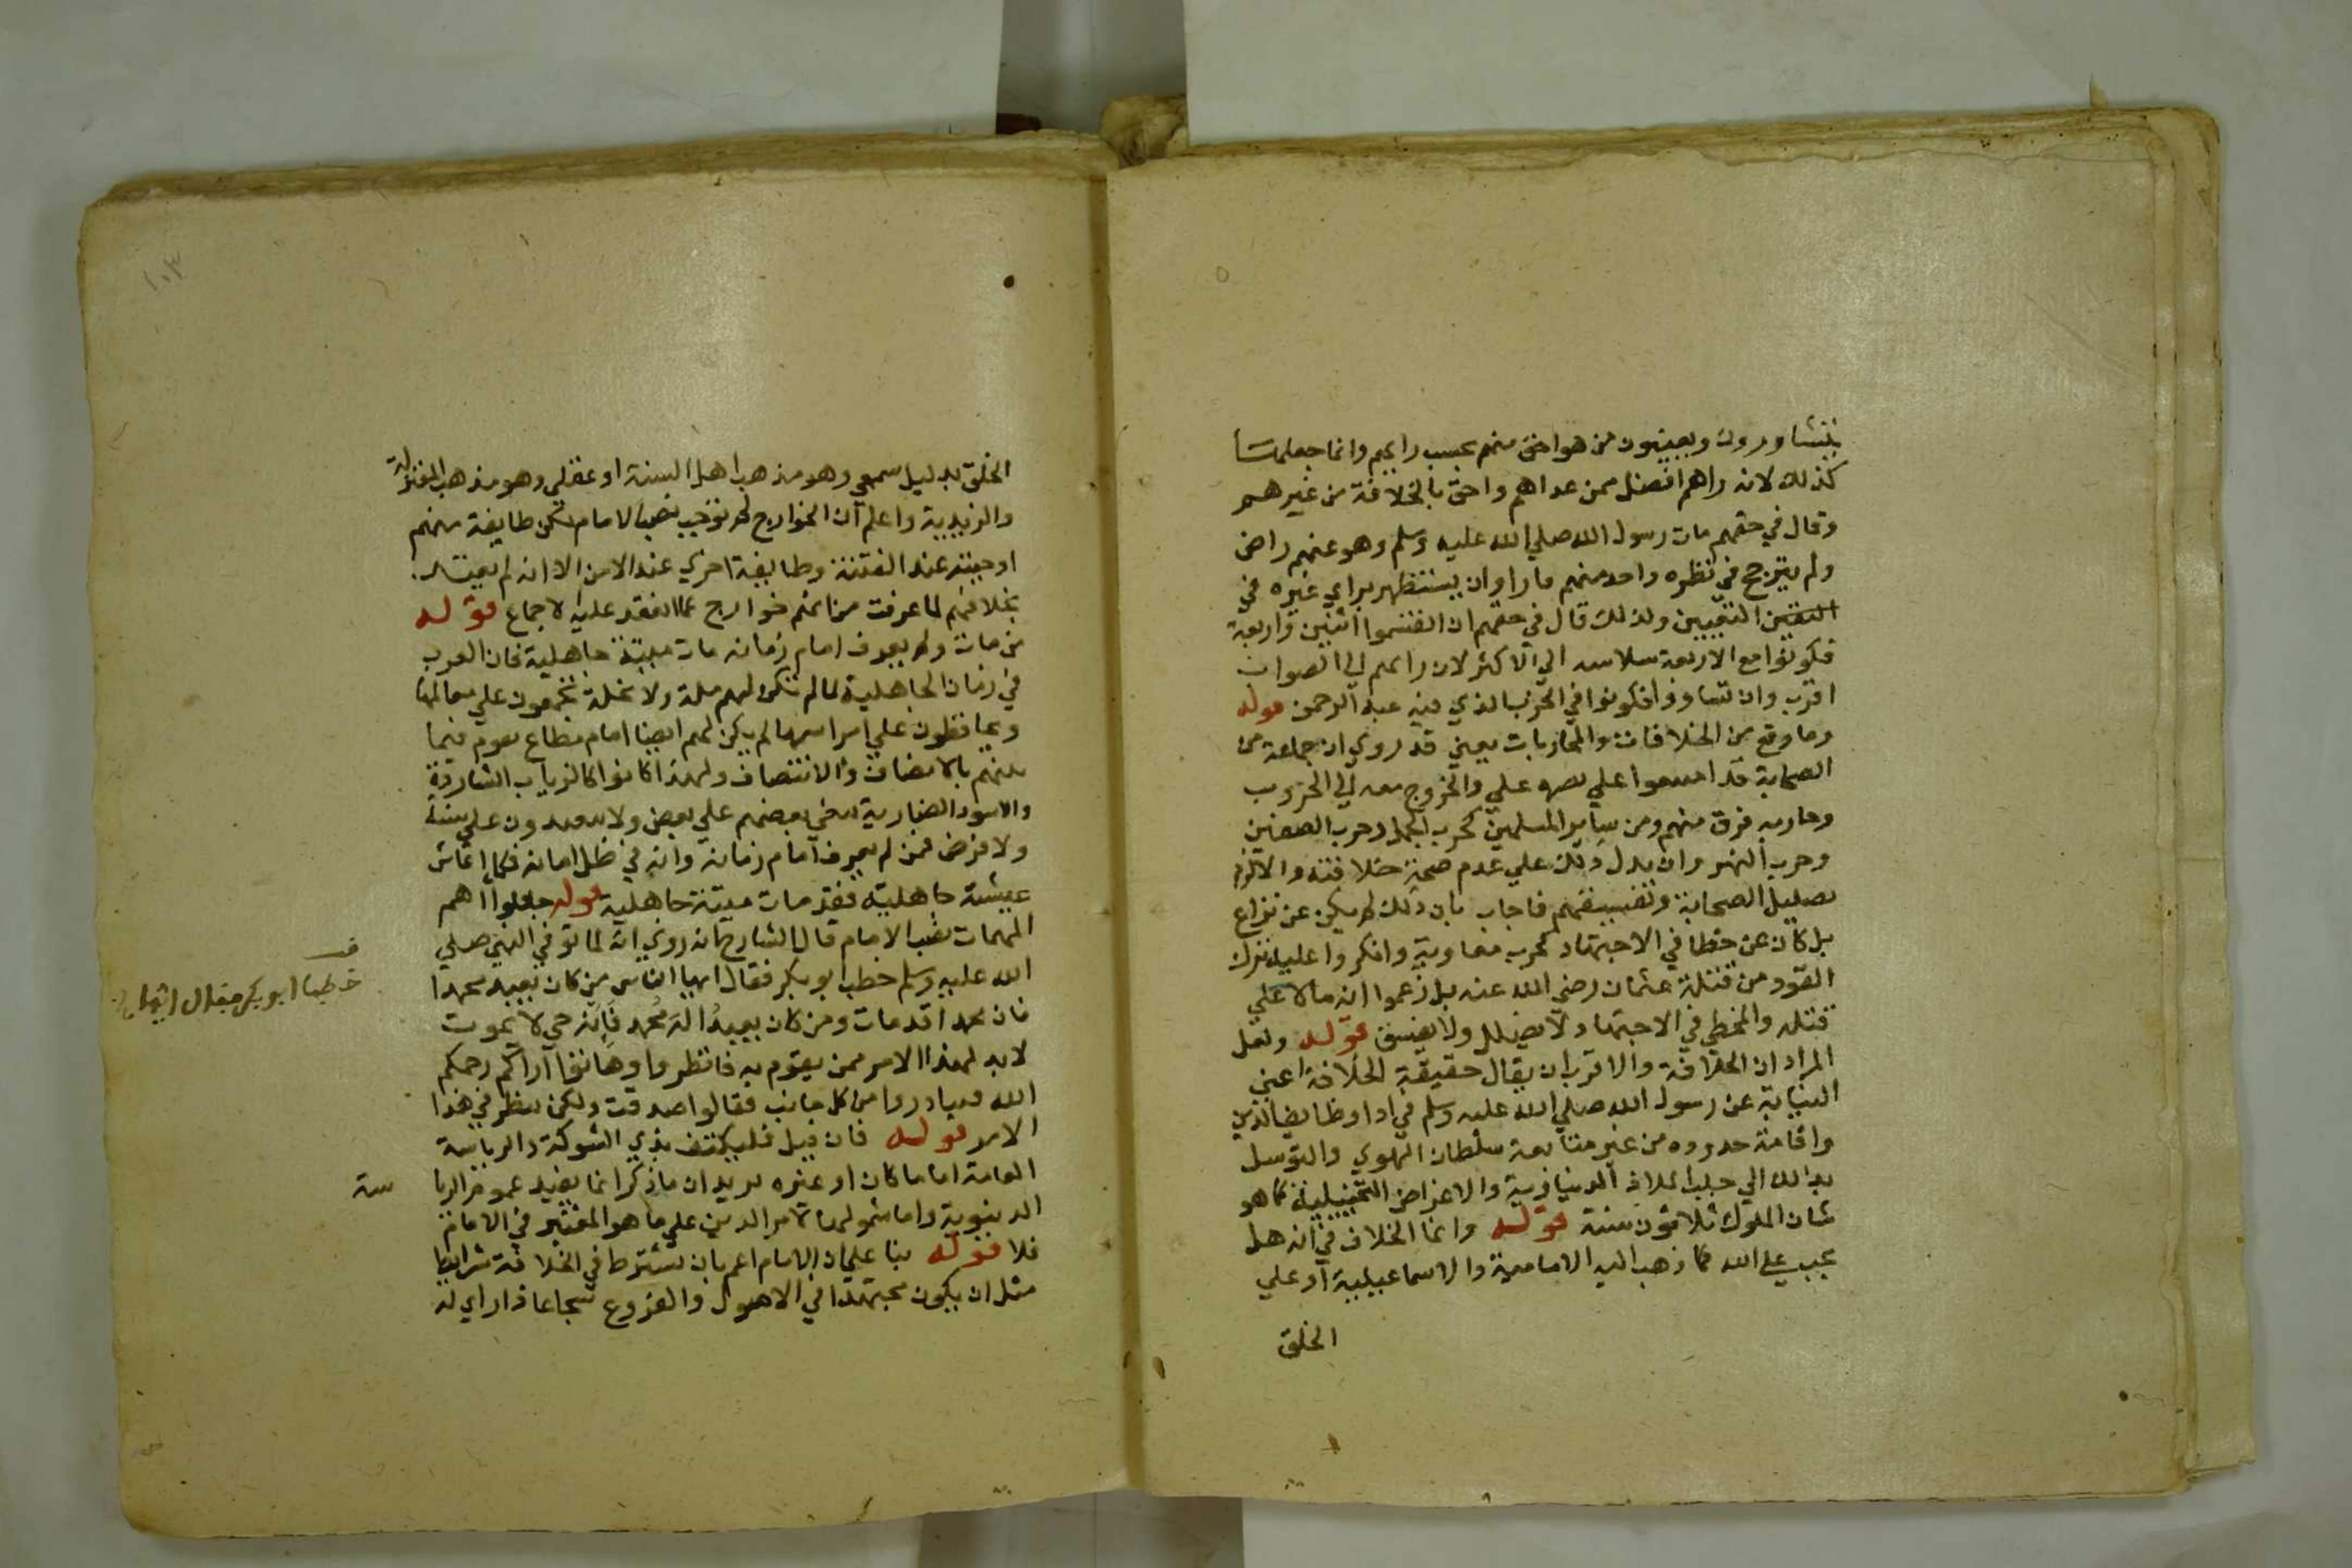 يتشاورون ويعينون من هو احق منهم بحسب رايهم وانما جعلها
كذلك لانه راهم افضل ممن عداهم واحق بالخلافة من غيرهم
وقال في حقهم مات رسول الله صلي الله عليه وسلم وهو عنهم راض
ولم يترجح في نظره واحد منهم فاراد ان يستظهر براي غيره في
التعيين ولذلك قال في حقهم ان انقسموا اثنين واربعة
فكونوا مع الاربعة الي الاكثر لان رايهم الي الصواب
اقرب وان تساووا فكونوا في الحزب الذي فيه عبد الرحمن قوله
وما وقع من الخلافات والمحاربات يعني قد روي ان جماعة من
الصحابة قد امتنعوا علي نصرة علي والخروج معه الي الحروب
وحاربه فرق منهم ومن ساير المسلمين كحرب الجمل وحرب الصفين
وحرب النهروان يدل ذلك علي عدم صحة خلافته والا لزم
تضليل الصحابة وتفسيقهم فاجاب بان ذلك لم يكن عن نزاع
بل كان عن خطا في الاجتهاد كحرب معاوية وانكروا عليه ترك
القود من قتلة عثمان رضي الله عنه بل زعموا انه مالا علي
قتله والمخطي في الاجتهاد لا يضلل ولا يفسق قوله ولعل
المراد ان الخلافة والاقرب ان يقال حقيقة الخلافة اعني
النيابة عن رسول الله صلي الله عليه وسلم في اداء وظايف الدين
واقامة حدوده من غير متابعة سلطان الهوي والتوسل
بذالك الي جلب الملاذ الدنياوية والاغراض التخييلية كما هو
شان الملوك ثلاثون سنة قوله وانما الخلاف في انه هل
يجب علي الله كما ذهب اليه الامامية والاسماعيلية او علي
الخلق
الخلق بدليل سمعي وهو مذهب اهل السنة او عقلي وهو مذهب المعتزلة
والزيدية واعلم ان الخوارج لم توجب نصب الامام لكن طايفة منهم
اوجبته عند الفتنة وطايفة اخري عند الامن الا انه لم يعتد
بخلافهم لما عرفت من انهم خوارج عما انعقد عليه الاجماع قوله
من مات ولم يعرف امام زمانه مات ميتة جاهلية فان العرب
في زمان الجاهلية لما لم تكن لهم ملة ولا نحلة يجمعون علي معالمها
ويحافظون علي مراسمها لم يكن لهم ايضا امام مطاع يقوم فيما
بينهم بالانصاف والانتصاف ولهذا كانوا كالزياب الشاردة
والاسود الضارية يبغي بعضهم علي بعض ولا علي سنة
ولا فرض فمن لم يعرف امام زمانه وانه في ظل امانه فكما عاش
عيشة جاهلية فقد مات ميتة جاهلية قوله جعلوا اهم
المهمات نصب الامام قال الشارح انه روي انه لما توفي النبي صلي
الله عليه وسلم خطب ابو بكر فقال ايها الناس من كان يعبد محمدا
فان محمدا قد مات ومن كان يعبد اله محمد فانه حي لا يموت
لابد لهذا الامر ممن يقوم به فانظروا وهاتوا آراكم رحمكم
الله فتبادروا من كل جانب فقالوا صدقت ولكن ننظر في هذا
الامر قوله فان قيل فليكتف بذي الشوكة والرياسة
العامة اماما كان او غيره يريد ان ما ذكر انما يفيد عموم الريا
سة
الدنيوية واما شمولها لامر الدين علي ما هو المعتبر في الامامة
فلا قوله بنا علي ان الامام اعم بان يشترط في الخلافة شرايط
مثل ان يكون مجتهدا في الاصول والفروع شجاعا ذا راي له
خطب ابو بكر فقال ايها
١٠٣